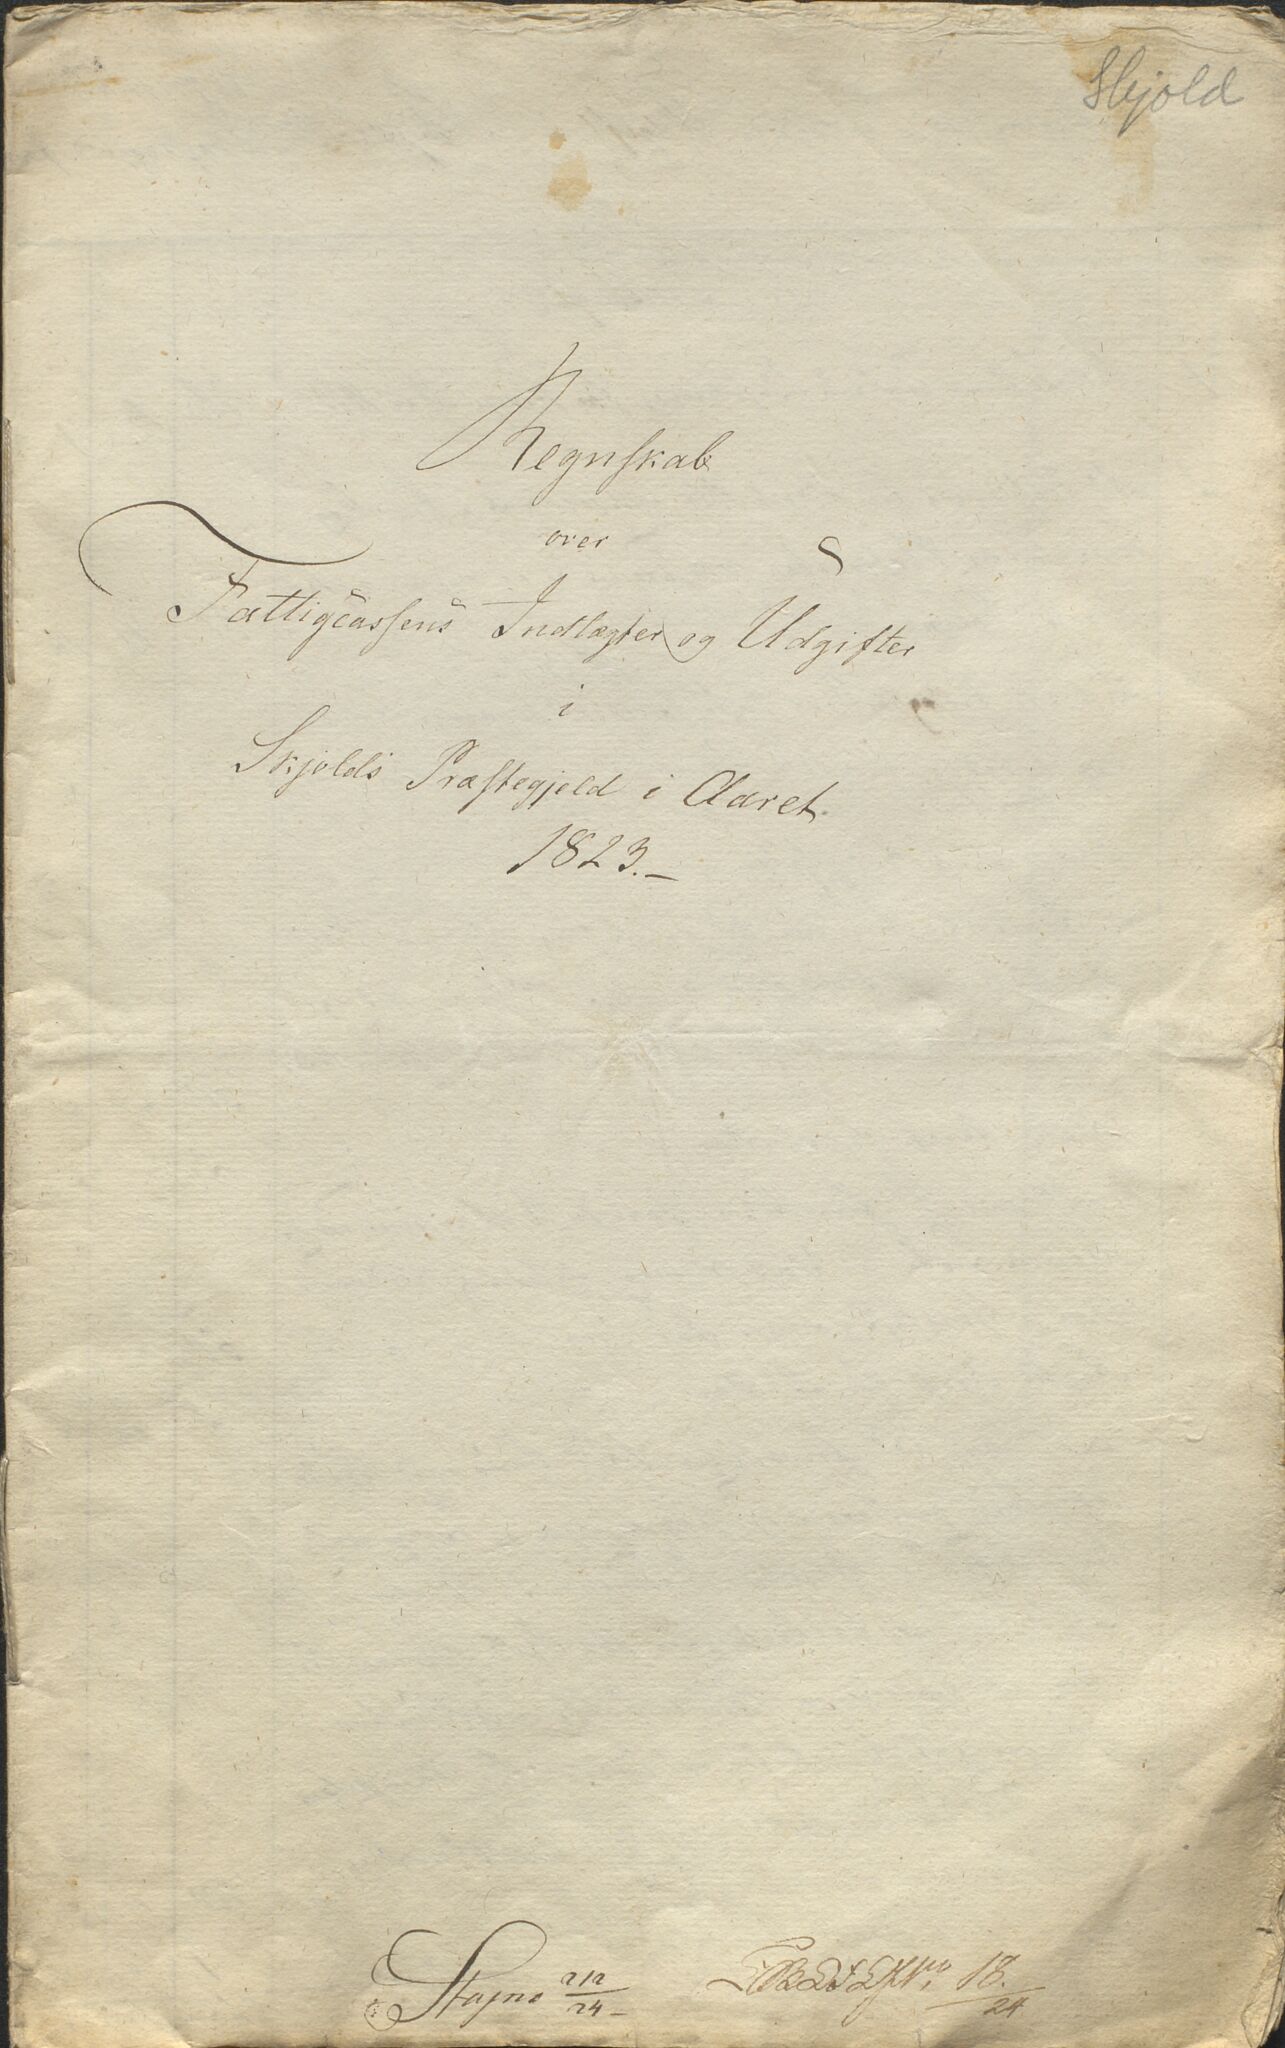 Skjold
Regnskab
over
Fattigcassens Indtægter og Udgifter
i
Skjolds Præstegjeld i Aaret
1823.-
212
24
18.
24